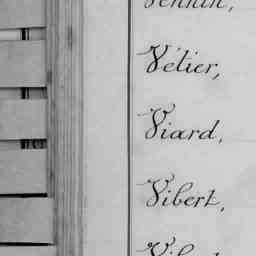 Vétier,
Viard,
Vibert,